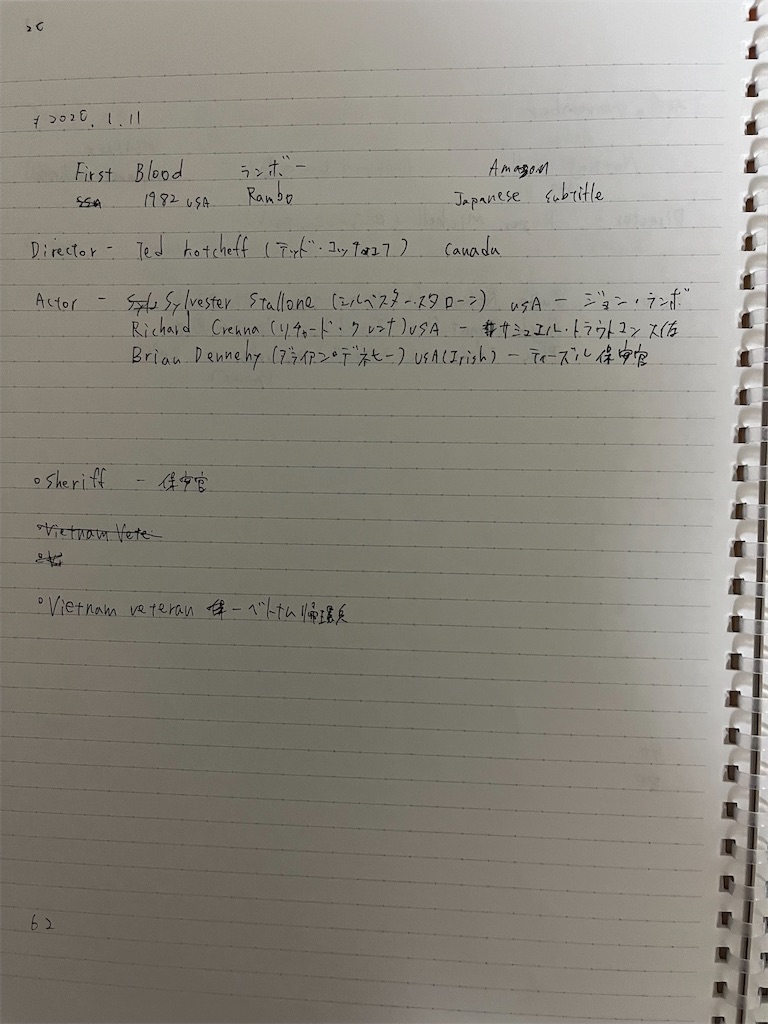 20
# 2020. 1. 11
First Blood ランボー Amazon
1982 USA Rambo Japanese subtitle
Director - Ted kotcheff (テッド・コッチェフ) Canada
Actor - Sylvester Stallone (シルベスター・スタローン) USA - ジョン・ランボー
Richard Crenna (リチャード・クレンナ) USA - サミュエル・トラウトマン大佐
Brian Dennehy (ブライアン・デネヒー) USA (Irish) - ティーズル保安官
○ Sheriff - 保安官
○ Vietnam Vete
○ Vietnam veteran - ベトナム帰還兵
62